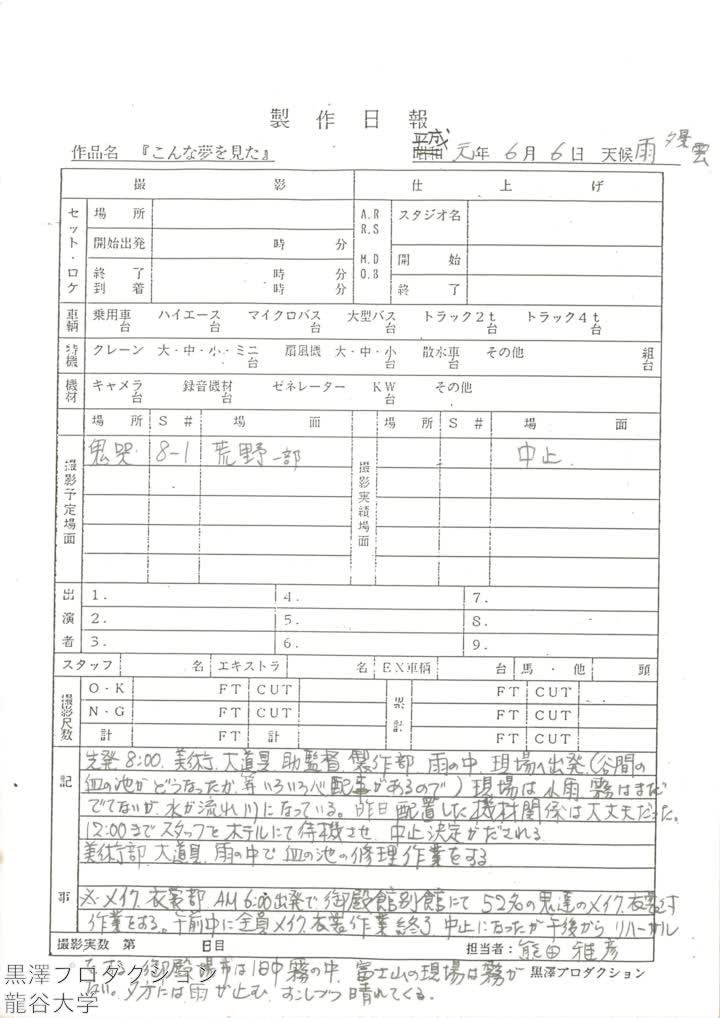 製作日報
作品名 『こんな夢を見た』 平成 元年 6月 6日 天候 雨 夕曇
撮影 仕上げ
セット・ロケ 場所 A.R R.S スタジオ名
開始出発 時 分 M.D O.B 開始
終了 時 分
到着 時 分 終了
車輌 乗用車 台 ハイエース 台 マイクロバス 台 大型バス 台 トラック2t 台 トラック4t 台
特機 クレーン 大・中・小・ミニ 台 扇風機 大・中・小 台 散水車 台 その他 組 台
機材 キャメラ 台 録音機材 台 ゼネレーター KW 台 その他
場所 S# 場面 場所 S# 場面
撮影予定場面 鬼哭 8-1 荒野一部 撮影実績場面 中止
出演者 1. 4. 7.
2. 5. 8.
3. 6. 9.
スタッフ 名 エキストラ 名 EX車輌 台 馬・他 頭
撮影尺数 O・K FT CUT 累計 FT CUT
N・G FT CUT FT CUT
計 FT 計 FT CUT
記事 先発8:00.美術.大道具.助監督 製作部 雨の中 現場へ出発(谷間の
血の池がどうなったか等いろいろ心配事があるので)現場は小雨 霧はまだ
でてないが、水が流れ川になっている。昨日配置した機材関係は大丈夫だった。
12:00までスタッフをホテルにて待機させ 中止決定がだされる
美術部 大道具 雨の中で血の池の修理作業をする
※メイク.衣裳部 AM6:00出発で御殿館別館にて52名の鬼達のメイク.衣裳を
作業をする。午前中に全員メイク.衣裳作業終了 中止になったが午後からリハーサル
撮影実数 第 日目 担当者: 熊田雅彦
をする。御殿場市は1日中霧の中、富士山の現場は霧が 黒澤プロダクション
ない。夕方には雨が止む すこしづつ晴れてくる。
黒澤プロダクション
龍谷大学